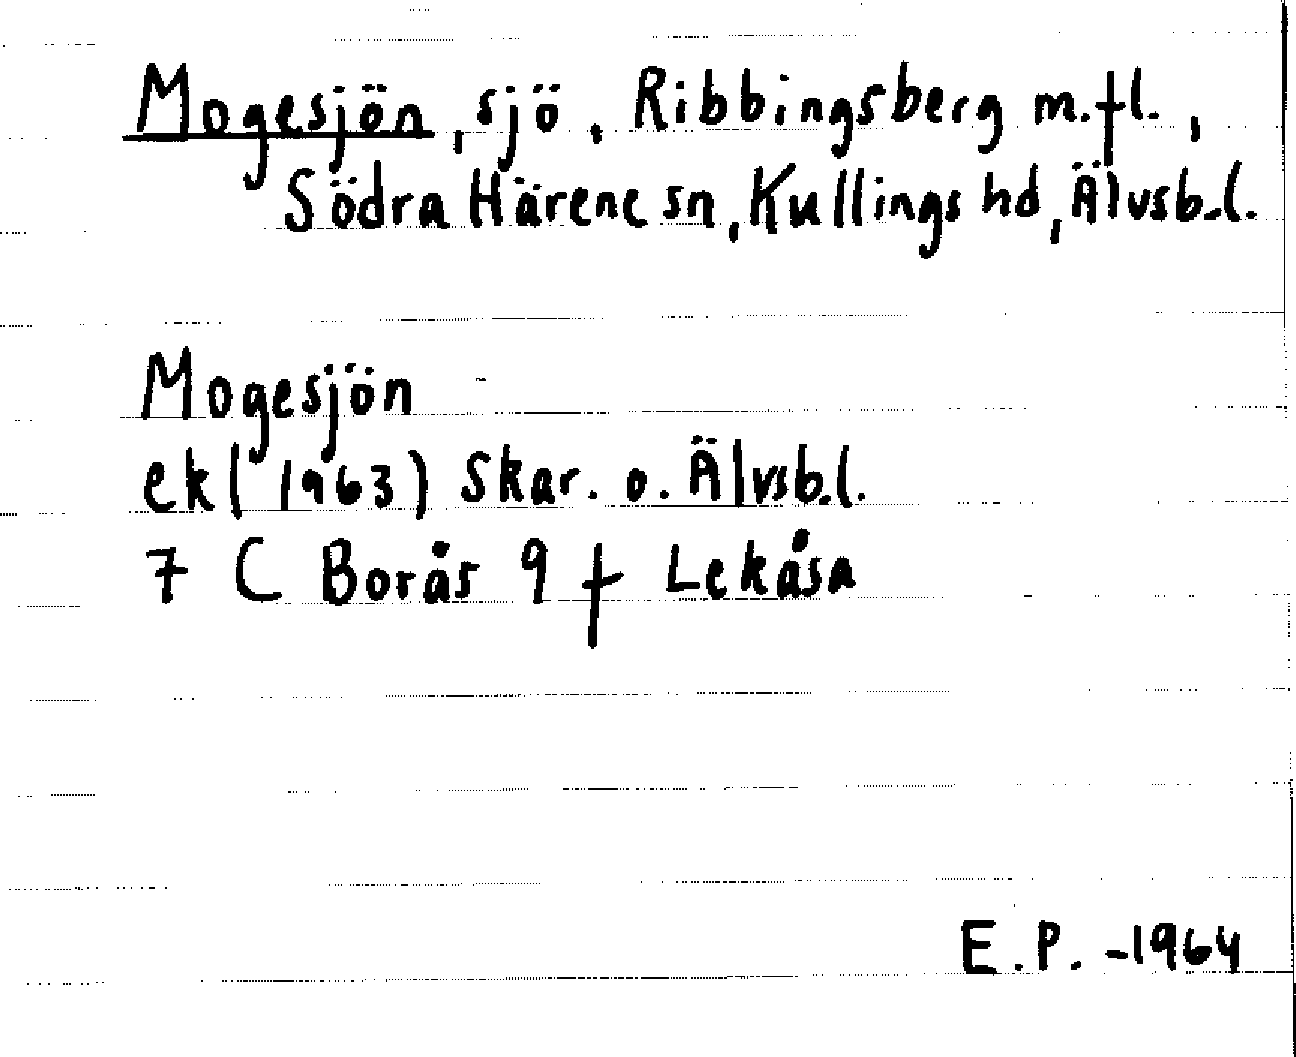 Mogesjön, sjö, Ribbingsberg m.fl.,
Södra Härene sn, Kullings hd, Älvsb.l.
Mogesjön
ek (1963) Skar. o. Älvsb.l.
7 C Borås 9 f Lekåsa
E.P. -1964